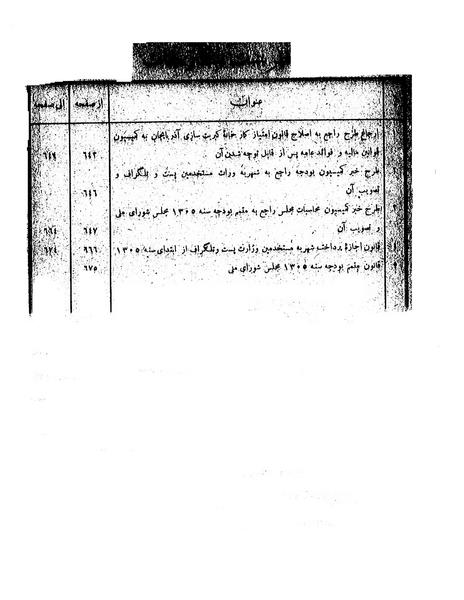 عنوان از صفحه الی صفحه
ارجاع طرح راجع به اصلاح قانون امتیاز کارخانهٔ کبریت سازی آذربایجان به کمیسیون
قوانین مالیه و فوائد عامه پس از قابل توجه شدن آن ۶۴۳
طرح خبر کمیسیون بودجه راجع به شهریهٔ وراث مستخدمین پست و تلگراف و
تصویب آن ۶۴۶
طرح خبر کمیسیون محاسبات مجلس راجع به متمم بودجه سنه ۱۳۰۵ مجلس شورای ملی
و تصویب آن ۶۴۷
قانون اجازهٔ پرداخت شهریه مستخدمین وزارت پست و تلگراف از ابتدای سنه ۱۳۰۵
قانون متمم بودجه سنه ۱۳۰۵ مجلس شورای ملی ۶۷۵